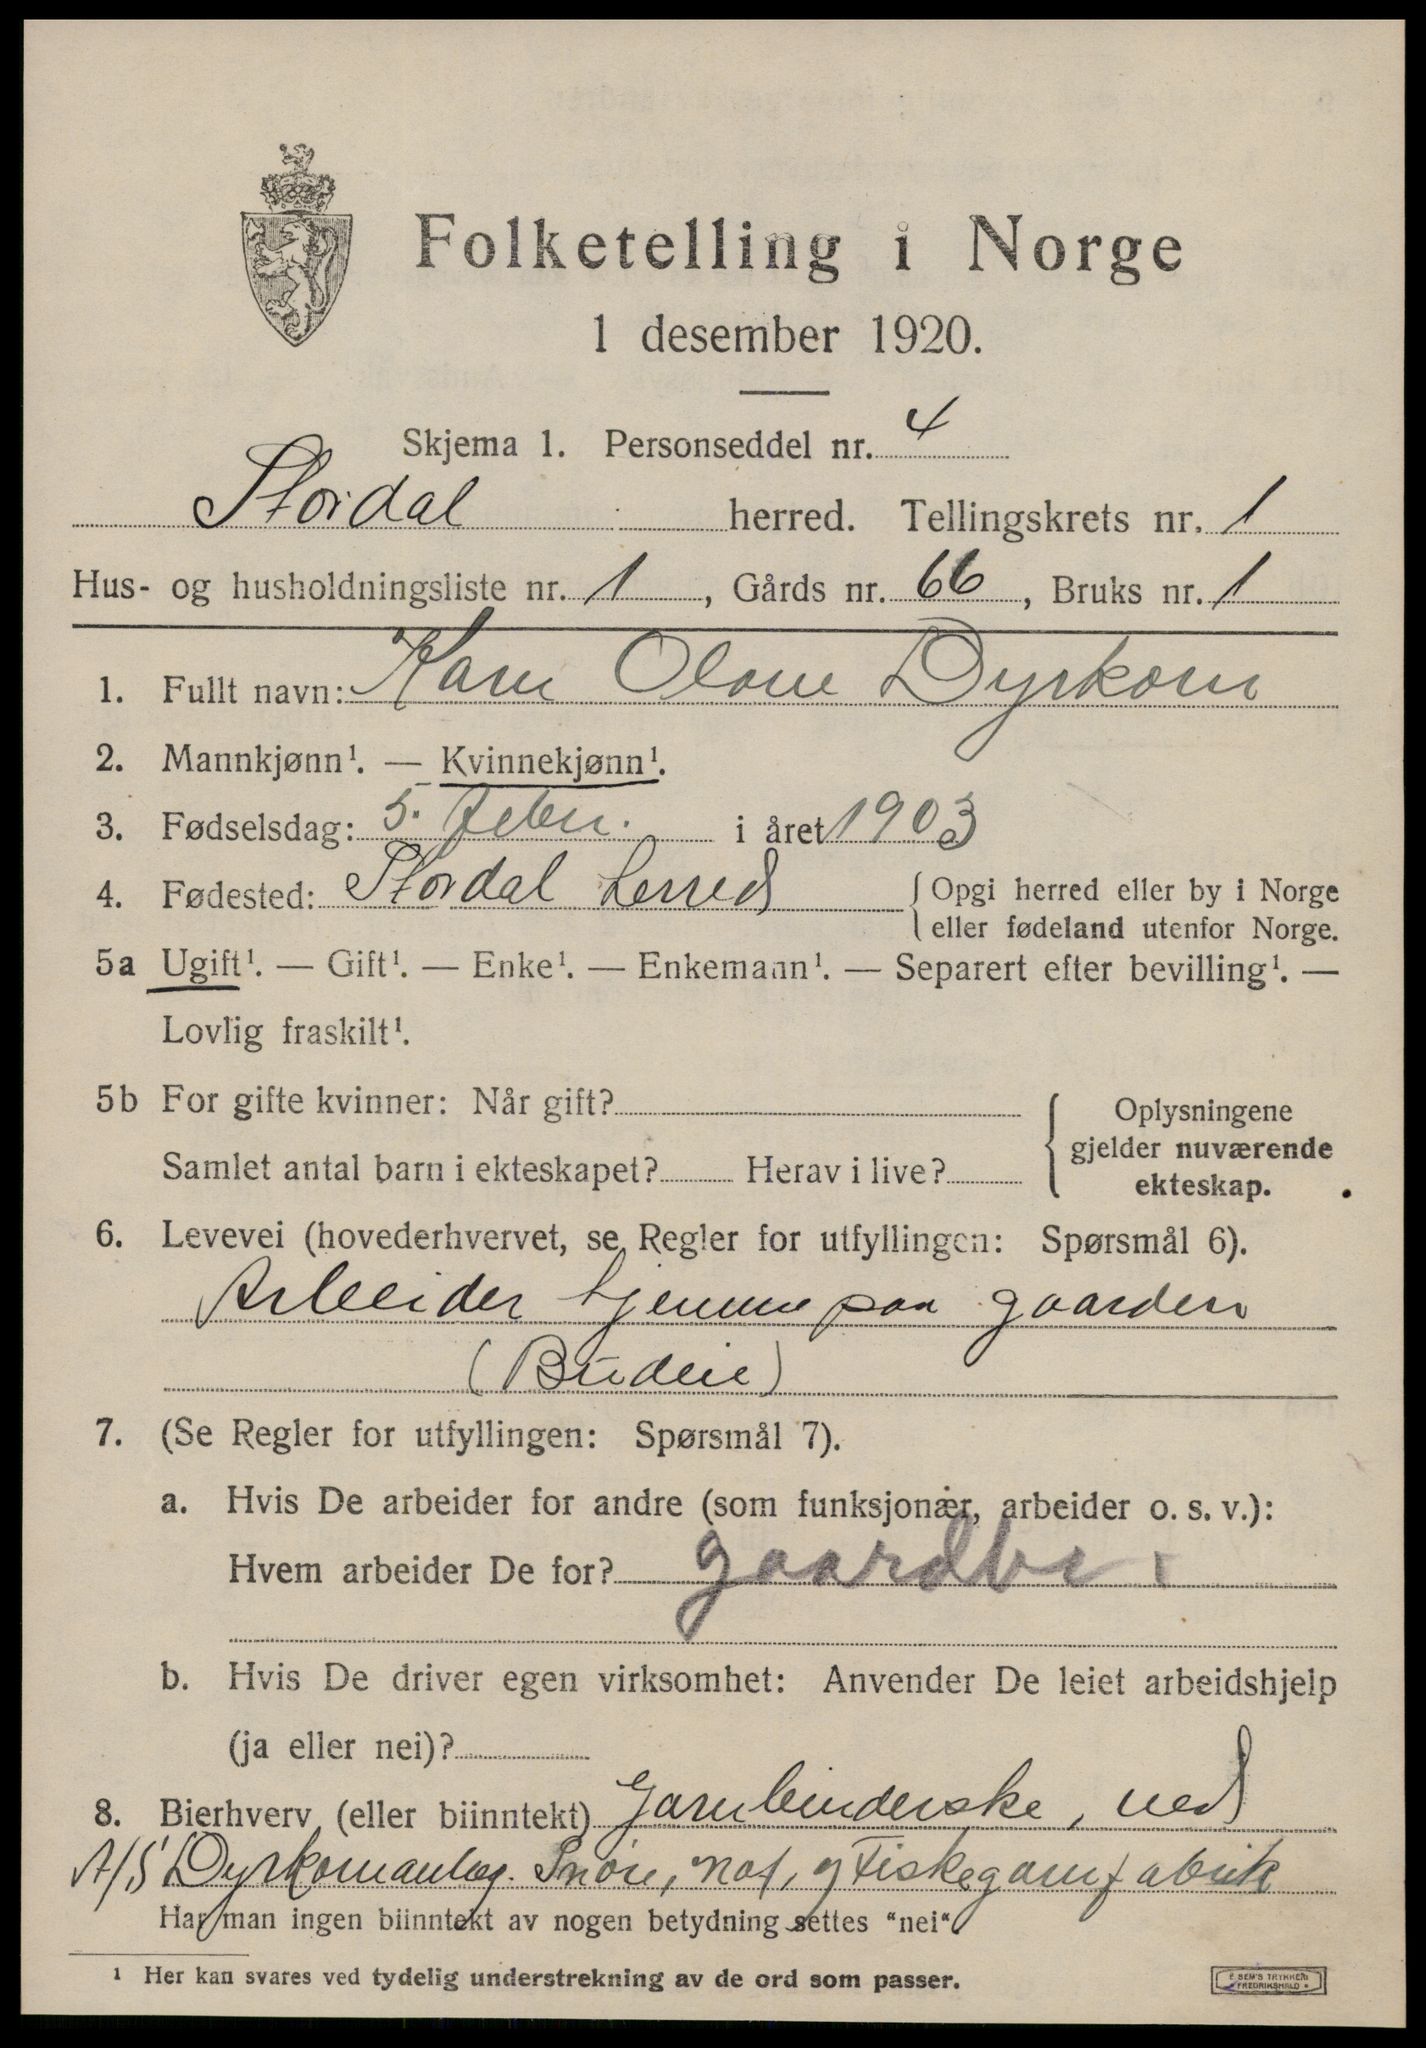 Folketelling i Norge
1 desember 1920.
Skjema 1. Personseddel nr. 4
Stordal herred. Tellingskrets nr. 1
Hus- og husholdningsliste nr. 1, Gårds nr. 66, Bruks nr. 1
1. Fullt navn: Olove Dyrkorn
2. Mannkjønn¹. — Kvinnekjønn¹.
3. Fødselsdag: 5. febr. i året 1903
4. Fødested: Stordal herred { Opgi herred eller by i Norge
eller fødeland utenfor Norge.
5a Ugift¹. — Gift¹. — Enke¹. — Enkemann¹. — Separert efter bevilling¹. —
Lovlig fraskilt¹.
5b For gifte kvinner: Når gift?
Samlet antal barn i ekteskapet? Herav i live?
{ Oplysningene
gjelder nuværende
ekteskap.
6. Levevei (hovederhvervet, se Regler for utfyllingen: Spørsmål 6).
Arbeider hjemme paa gaarden
(Budeie)
7. (Se Regler for utfyllingen: Spørsmål 7).
a. Hvis De arbeider for andre (som funksjonær, arbeider o. s. v.):
Hvem arbeider De for? gaardbr.
b. Hvis De driver egen virksomhet: Anvender De leiet arbeidshjelp
(ja eller nei)?
8. Bierhverv (eller biinntekt) Garnbinderske, ved
A/S Dyrkornanlæg. Snøre, not, og Fiskegarnfabrik
Har man ingen biinntekt av nogen betydning settes "nei"
¹ Her kan svares ved tydelig understrekning av de ord som passer.
E. SEM'S TRYKKERI
FREDRIKSHALD